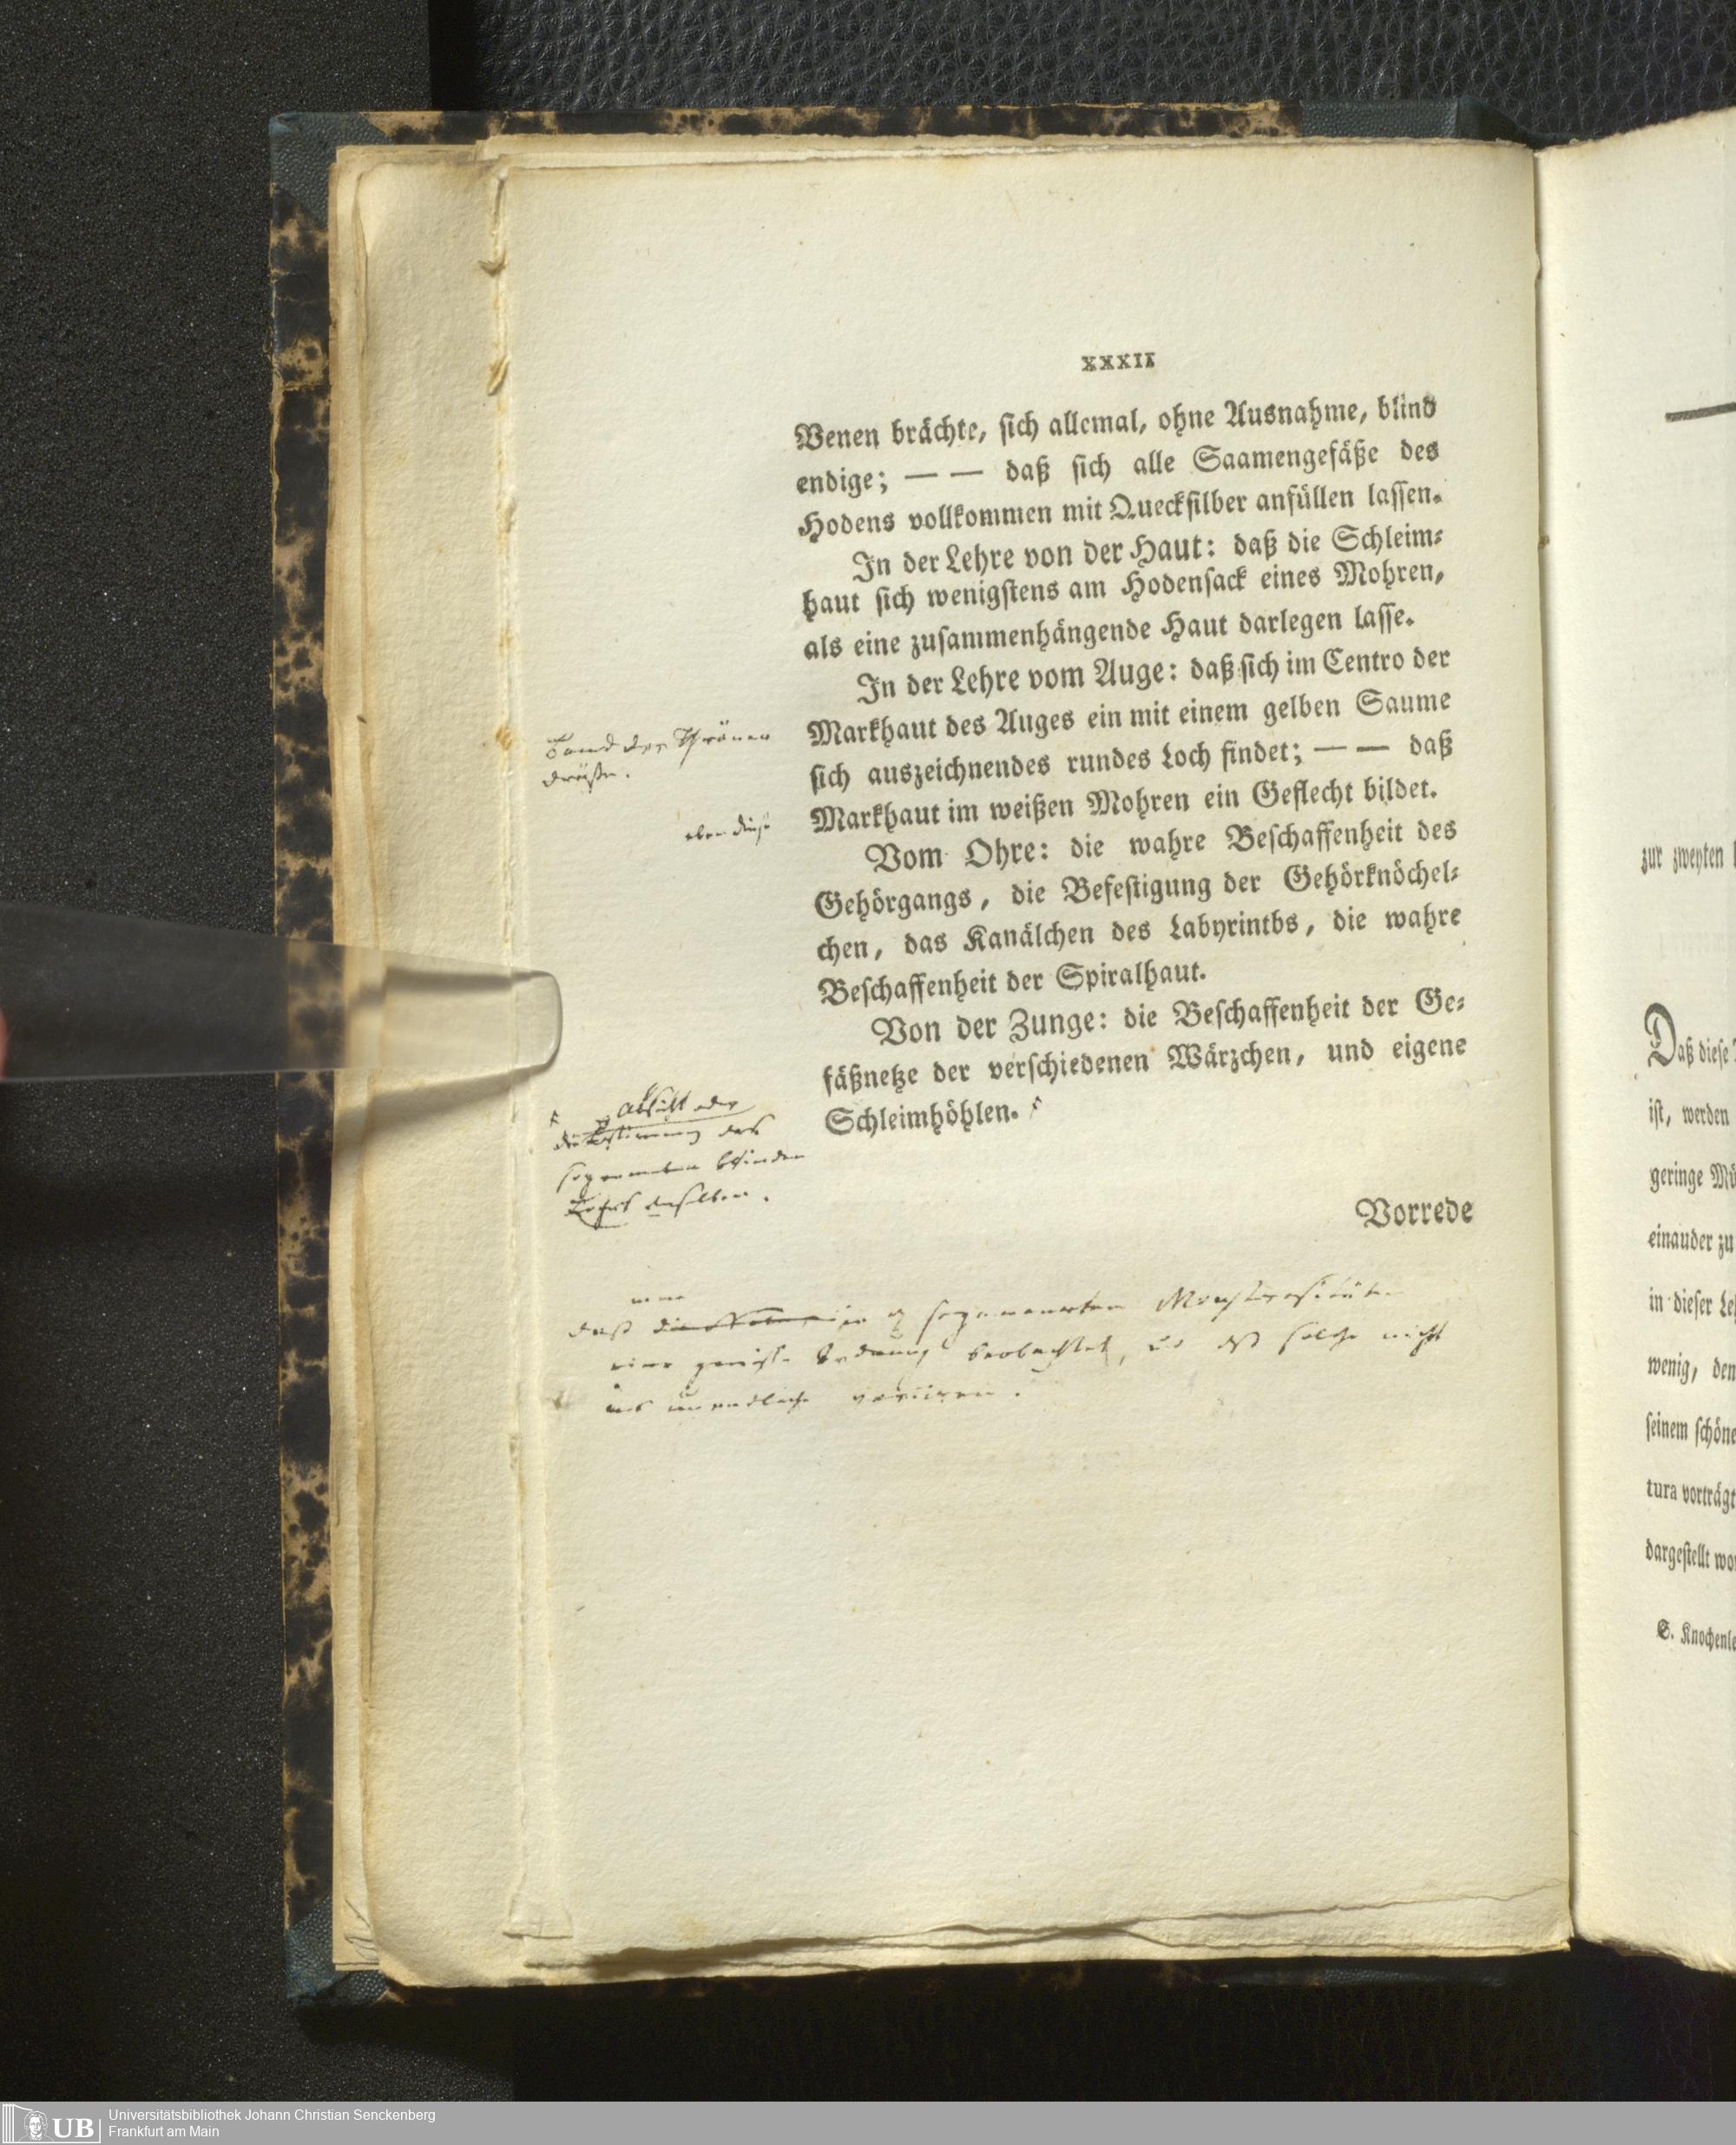 XXXII
Venen brächte, sich allemal, ohne Ausnahme, blind
endige; — — daß sich alle Saamengefäße des
Hodens vollkommen mit Quecksilber anfüllen lassen.
In der Lehre von der Haut: daß die Schleim-
haut sich wenigstens am Hodensack eines Mohren,
als eine zusammenhängende Haut darlegen lasse.
In der Lehre vom Auge: daß sich im Centro der
Markhaut des Auges ein mit einem gelben Saume
sich auszeichnendes rundes Loch findet; — — daß
Markhaut im weißen Mohren ein Geflecht bildet.
Vom Ohre: die wahre Beschaffenheit des
Gehörgangs, die Befestigung der Gehörknöchel-
chen, das Kanälchen des Labyrinths, die wahre
Beschaffenheit der Spiralhaut.
Von der Zunge: die Beschaffenheit der Ge-
fäßnetze der verschiedenen Wärzchen, und eigene
Schleimhöhlen.
Vorrede
der Thränen
drüsen.
eben diese
Absicht oder
die Bestimmung des
sogenannten blinden
Lochs derselben.
daß sogenannten Monstrositäten
eine gewisse Ordnung beobachtet, daß solche nicht
ins unendliche variiren.
zur zweyten
Daß diese
ist, werden
geringe
einander zu
in dieser
wenig, den
seinem
tura vorträgt
dargestellt
S.
UB
Universitätsbibliothek Johann Christian Senckenberg
Frankfurt am Main